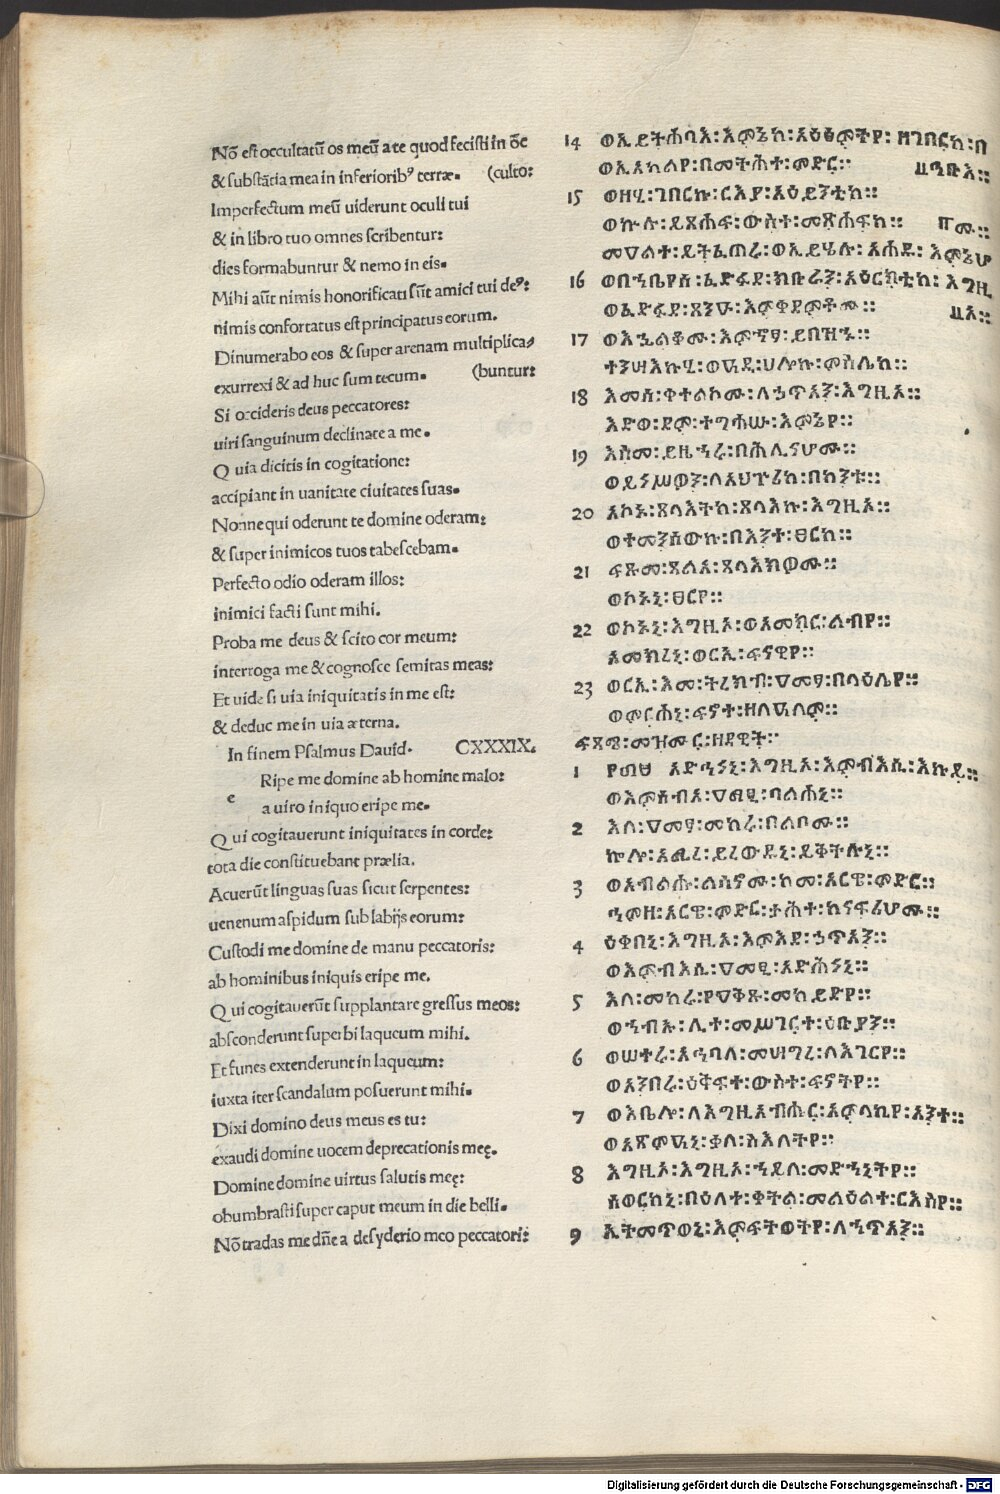 Nō est occultatū os meū a te quod fecisti in ōc
& substātia mea in inferiorib⁹ terræ. (culto:
Imperfectum meū uiderunt oculi tui
& in libro tuo omnes scribentur:
dies formabuntur & nemo in eis.
Mihi aūt nimis honorificati sūt amici tui de⁹:
nimis confortatus est principatus eorum.
Dinumerabo eos & super arenam multiplica⸗
exurrexi & ad huc sum tecum. (buntur:
Si occideris deus peccatores:
uiri sanguinum declinate a me.
Q uia dicitis in cogitatione:
accipiant in uanitate ciuitates suas.
Nonne qui oderunt te domine oderam:
& super inimicos tuos tabescebam.
Perfecto odio oderam illos:
inimici facti sunt mihi.
Proba me deus & scito cor meum:
interroga me & cognosce semitas meas:
Et uide si uia iniquitatis in me est:
& deduc me in uia æterna.
In finem Psalmus Dauid. CXXXIX.
Ripe me domine ab homine malo:
e a uiro iniquo eripe me.
Q ui cogitauerunt iniquitates in corde:
tota die constituebant prælia.
Acuerūt linguas suas sicut serpentes:
uenenum aspidum sub labijs eorum:
Custodi me domine de manu peccatoris:
ab hominibus iniquis eripe me.
Q ui cogitauerūt supplantare gressus meos:
absconderunt superbi laqueum mihi.
Et funes extenderunt in laqueum:
iuxta iter scandalum posuerunt mihi.
Dixi domino deus meus es tu:
exaudi domine uocem deprecationis meę.
Domine domine uirtus salutis meę:
obumbrasti super caput meum in die belli.
Nō tradas me dñe a desyderio meo peccatori:
14 ወኢይትኅባእ፡እምኔከ፡አዕፅምትየ፡ዘገበርከ፡በ
ወኢአካልየ፡በመትሕተ፡ምድር፡፡ ኅቡእ፡፡
15 ወዘሂ፡ገበርኩ፡ርእያ፡አዕይንቲከ፡፡
ወኵሉ፡ይጸሐፍ፡ውስተ፡መጽሐፍከ፡፡ ሙ፡፡
መዓልተ፡ይትፈጠሩ፡ወኢይሄሉ፡አሐዱ፡እምኔሆ
16 ወበኀቤየሰ፡ፈድፋደ፡ክቡራን፡አዕርክቲከ፡እግዚ
ወፈድፋደ፡ጸንዑ፡እምቀደምቶሙ፡፡ ኦ፡፡
17 ወእኄልቆሙ፡እምኆፃ፡ይበዝኁ፡፡
ተንሣእኩሂ፡ወዓዲ፡ሀሎኩ፡ምስሌከ፡፡
18 እመሰ፡ቀተልኮሙ፡ለኃጥኣን፡እግዚኦ፡፡
እድወ፡ደም፡ተግሕሡ፡እምኔየ፡፡
19 እስመ፡ይዜኀሩ፡በሕሊናሆሙ፡፡
ወይነሥዎን፡ለአህጉሪከ፡በከንቱ፡፡
20 አኮኑ፡ጸላእትከ፡ጸላእኩ፡እግዚኦ፡፡
ወተመንሰውኩ፡በእንተ፡ፀርከ፡፡
21 ፍጹመ፡ጽልአ፡ጸላእክዎሙ፡፡
ወኮኑኒ፡ፀርየ፡፡
22 ወኮኑኒ፡እግዚኦ፡ወአመክር፡ልብየ፡፡
አመክረኒ፡ወርኢ፡ፍናዊየ፡፡
23 ወርኢ፡እመ፡ትረክብ፡ዓመፃ፡በላዕሌየ፡፡
ወምርሐኒ፡ፍኖተ፡ዘለዓለም፡፡
መዝሙር፡ዘዳዊት፡
1 አድኅነኒ፡እግዚኦ፡እምብእሲ፡እኩይ፡፡
ወእምሰብአ፡ዓማፂ፡ባልሐኒ፡፡
2 እለ፡ዓመፃ፡መከሩ፡በልቦሙ፡፡
ኵሎ፡አሚረ፡ይረውዱኒ፡ይቅትሉኒ፡፡
3 ወአብልሑ፡ልሳኖሙ፡ከመ፡አርዌ፡ምድር፡፡
ኅምዘ፡አርዌ፡ምድር፡ታሕተ፡ከናፍሪሆሙ፡፡
4 ዕቀበኒ፡እግዚኦ፡እምእደ፡ኃጥኣን፡፡
ወእምብእሲ፡ዓመፂ፡አድኅነኒ፡፡
5 እለ፡መከሩ፡የዓቅጹ፡መከይድየ፡፡
ወኀብኡ፡ሊተ፡መሥገርተ፡ዕቡያን፡፡
6 ወሠተሩ፡አኅባለ፡መሣግረ፡ለእገርየ፡፡
ወአንበሩ፡ዕቅፍተ፡ውስተ፡ፍኖትየ፡፡
7 ወእቤሎ፡ለእግዚአብሔር፡አምላኪየ፡አንተ፡፡
ወአጽምዓኒ፡ቃለ፡ስእለትየ፡፡
8 እግዚኦ፡እግዚኦ፡ኀይለ፡መድኀኒትየ፡፡
ሰወርከኒ፡በዕለተ፡ቀትል፡መልዕልተ፡ርእስየ፡፡
9 ኢትመጥወኒ፡እምፍትወትየ፡ለኀጥኣን፡፡
Digitalisierung gefördert durch die Deutsche Forschungsgemeinschaft - DFG